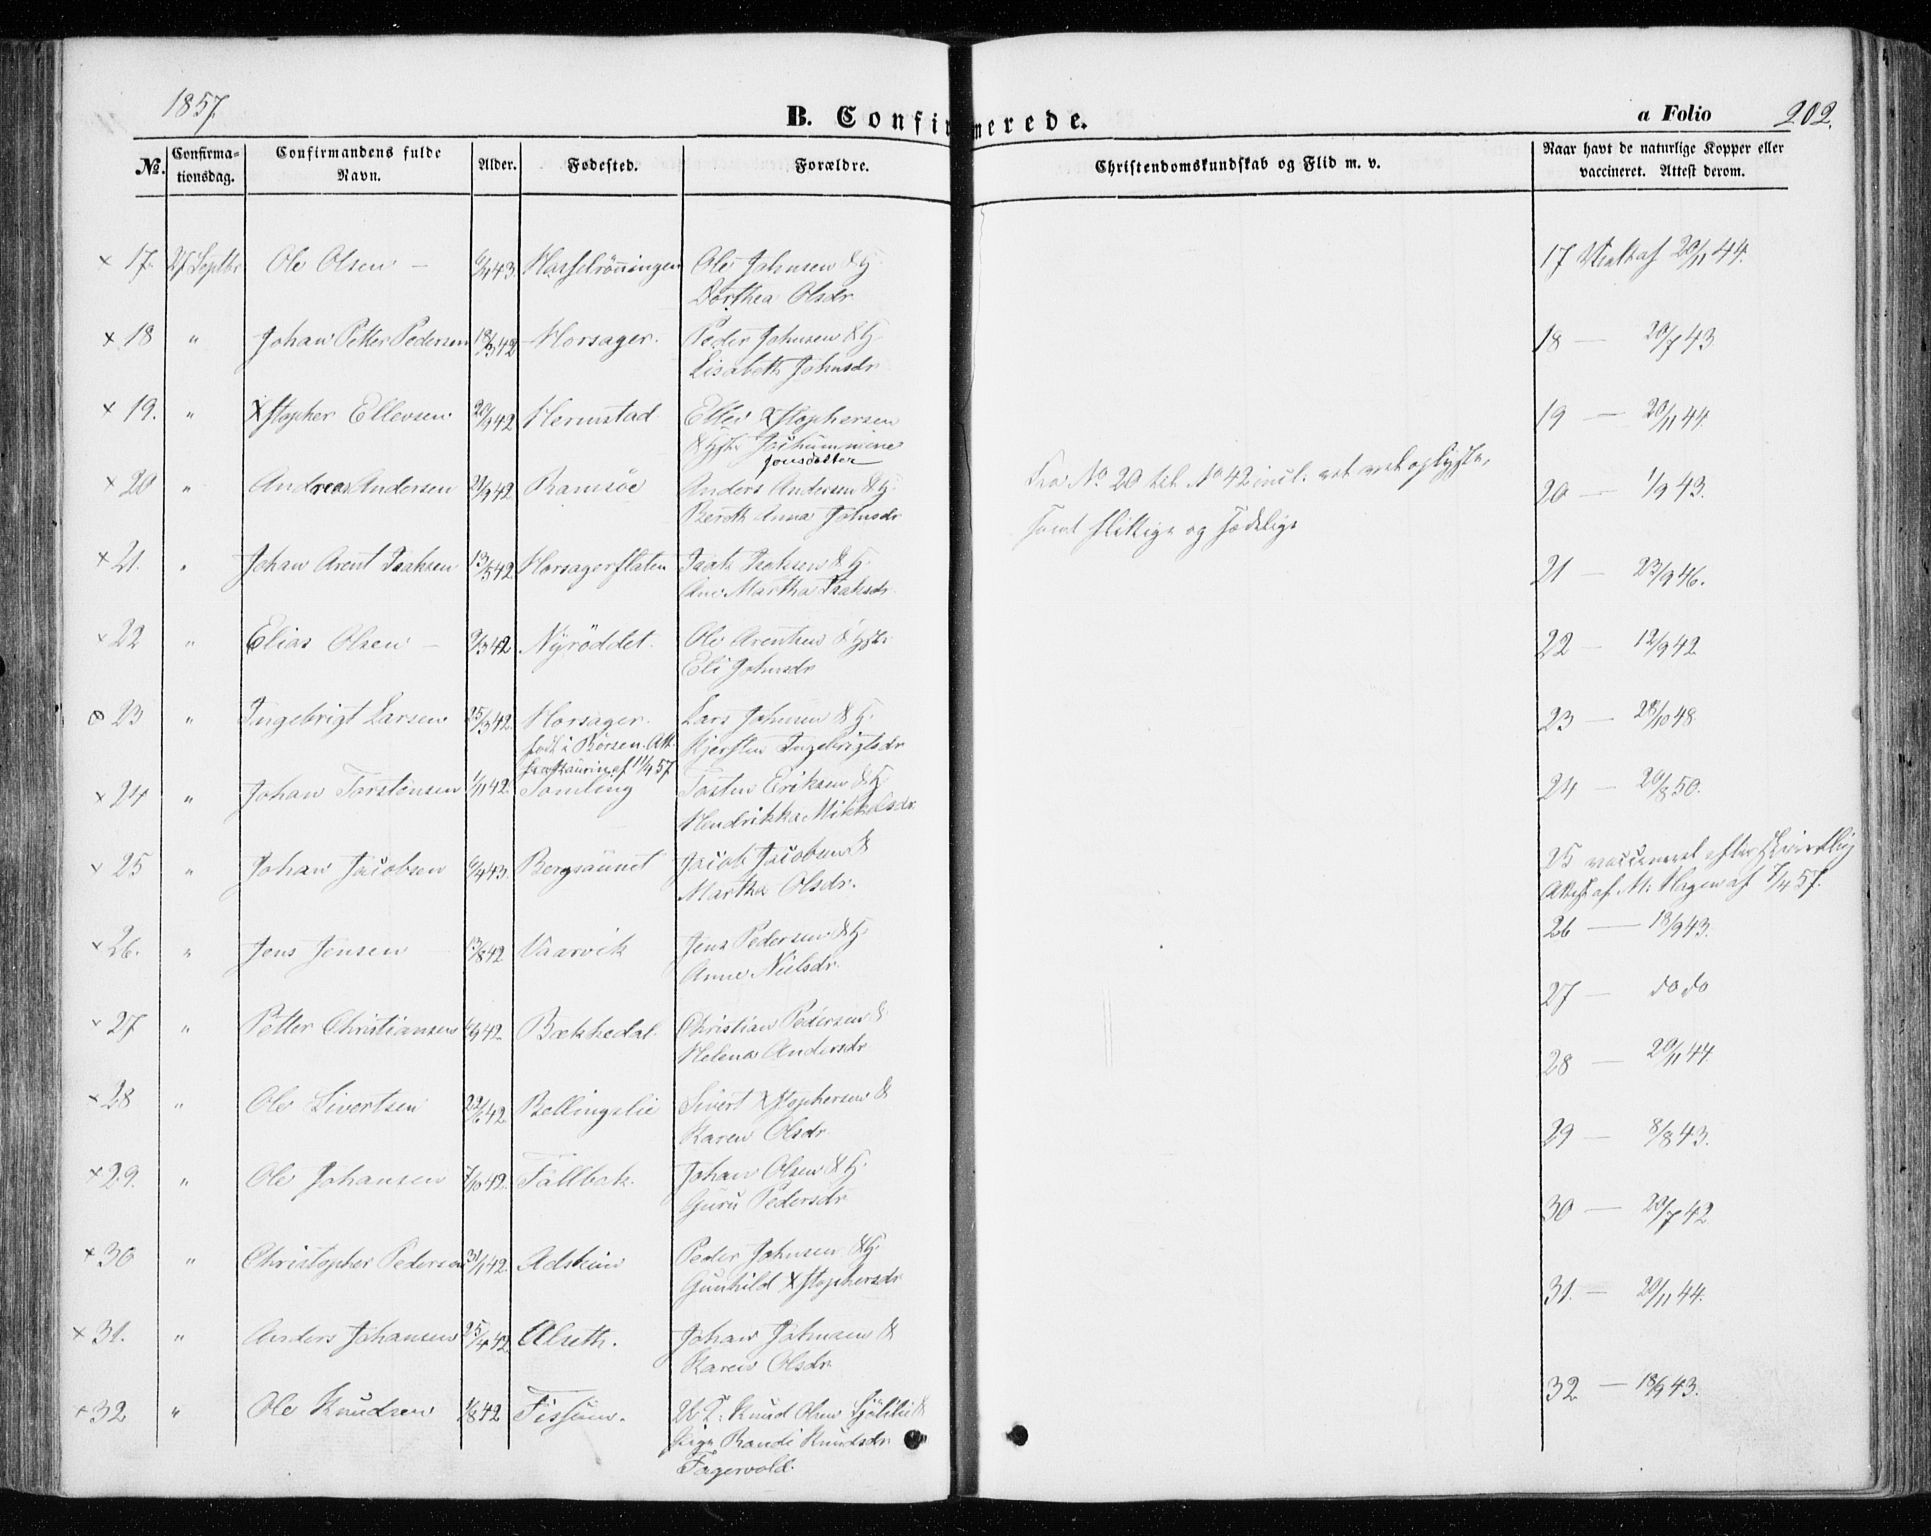 1857.
B. Confirmerede.
a Folio 202.
No. Confirma-tionsdag. Confirmandens fulde Navn. Alder. Fødested. Forældre. Christendomskundskab og Flid m. v. Naar havt de naturlige Kopper eller vaccineret. Attest derom.
× 17. 27 Septbr. Ole Olsen – 6/4 43. Hasselrönningen Ole Johnsen & Hj.
Dorthea Olsdr.
17 20/11 44.
× 18 " Johan Petter Pedersen 18/3 42 Horsager. Peder Johnsen & Hj.
Lisabeth Johnsdr.
18 — 20/7 43
× 19. " Xstopher Ellevsen 20/9 42 Hermstad Ellev Xstophersen
Jonsdatter
19 — 20/11 44.
× 20 " Andreas Andersen 21/9 42 Ramsöe Anders Andersen & Hj.
Bereth Anna Johnsdr.
Fra No 20 til No 42 incl.
samt flittige og sædelige
20 — 1/9 43.
× 21. " Johan Arent Isaksen 13/5 42 Horsagerflaten Isak Isaksen & Hj.
Ane Martha Isaksdr.
21 — 23/9 46.
× 22 " Elias Olsen – 9/3 42 Nyröddet. Ole Arentsen
Eli Johnsdr
22 — 12/9 42
23 " Ingebrigt Larsen 25/3 42 Horsager. Lars Johnsen & Hj.
født i Börsen. Att.
Kjersten Ingebrigtsdr
23 — 28/10 48.
× 24 " Johan Torstensen 1/11 42. Tomling Tosten Eriksen & Hj
Hendrikka Mikkelsdr.
24 — 20/8 50.
× 25 " Johan Jacobsen 6/4 43. Bergsaunet Jacob Jacobsen &
Martha Olsdr.
25 vaccineret efter
Attest af M: Hagen af 7/4 57.
× 26. " Jens Jensen 13/8 42 Vaarvik Jens Pedersen & Hj.
Anne Nielsdr.
26 — 18/9 43.
× 27 " Petter Christiansen 6/9 42. Bækkedal. Christian Pedersen &
Helena Andersdr
27 — do do
× 28 " Ole Sivertsen 22/6 42 Bellingslie Sivert Xstophersen &
Karen Olsdr.
28 — 20/11 44
× 29. " Ole Johansen 7/10 42. Fallbak. Johan Olsen & Hj.
Guru Pedersdr.
29 — 8/8 43.
× 30 " Christopher Pedersen 31/1 42. Adskin Peder Johnsen & Hj.
Gunhild Xstophersdr
30 — 20/7 42
× 31. " Anders Johansen 25/4 42 Alseth. Johan Johnsen &
Karen Olsdr.
31. — 20/11 44.
× 32 " Ole Knudsen 1/8 42 Fissum. Knud Olsen
Pige Randi Knudsdr
Fagervold.
32 — 18/9 43.